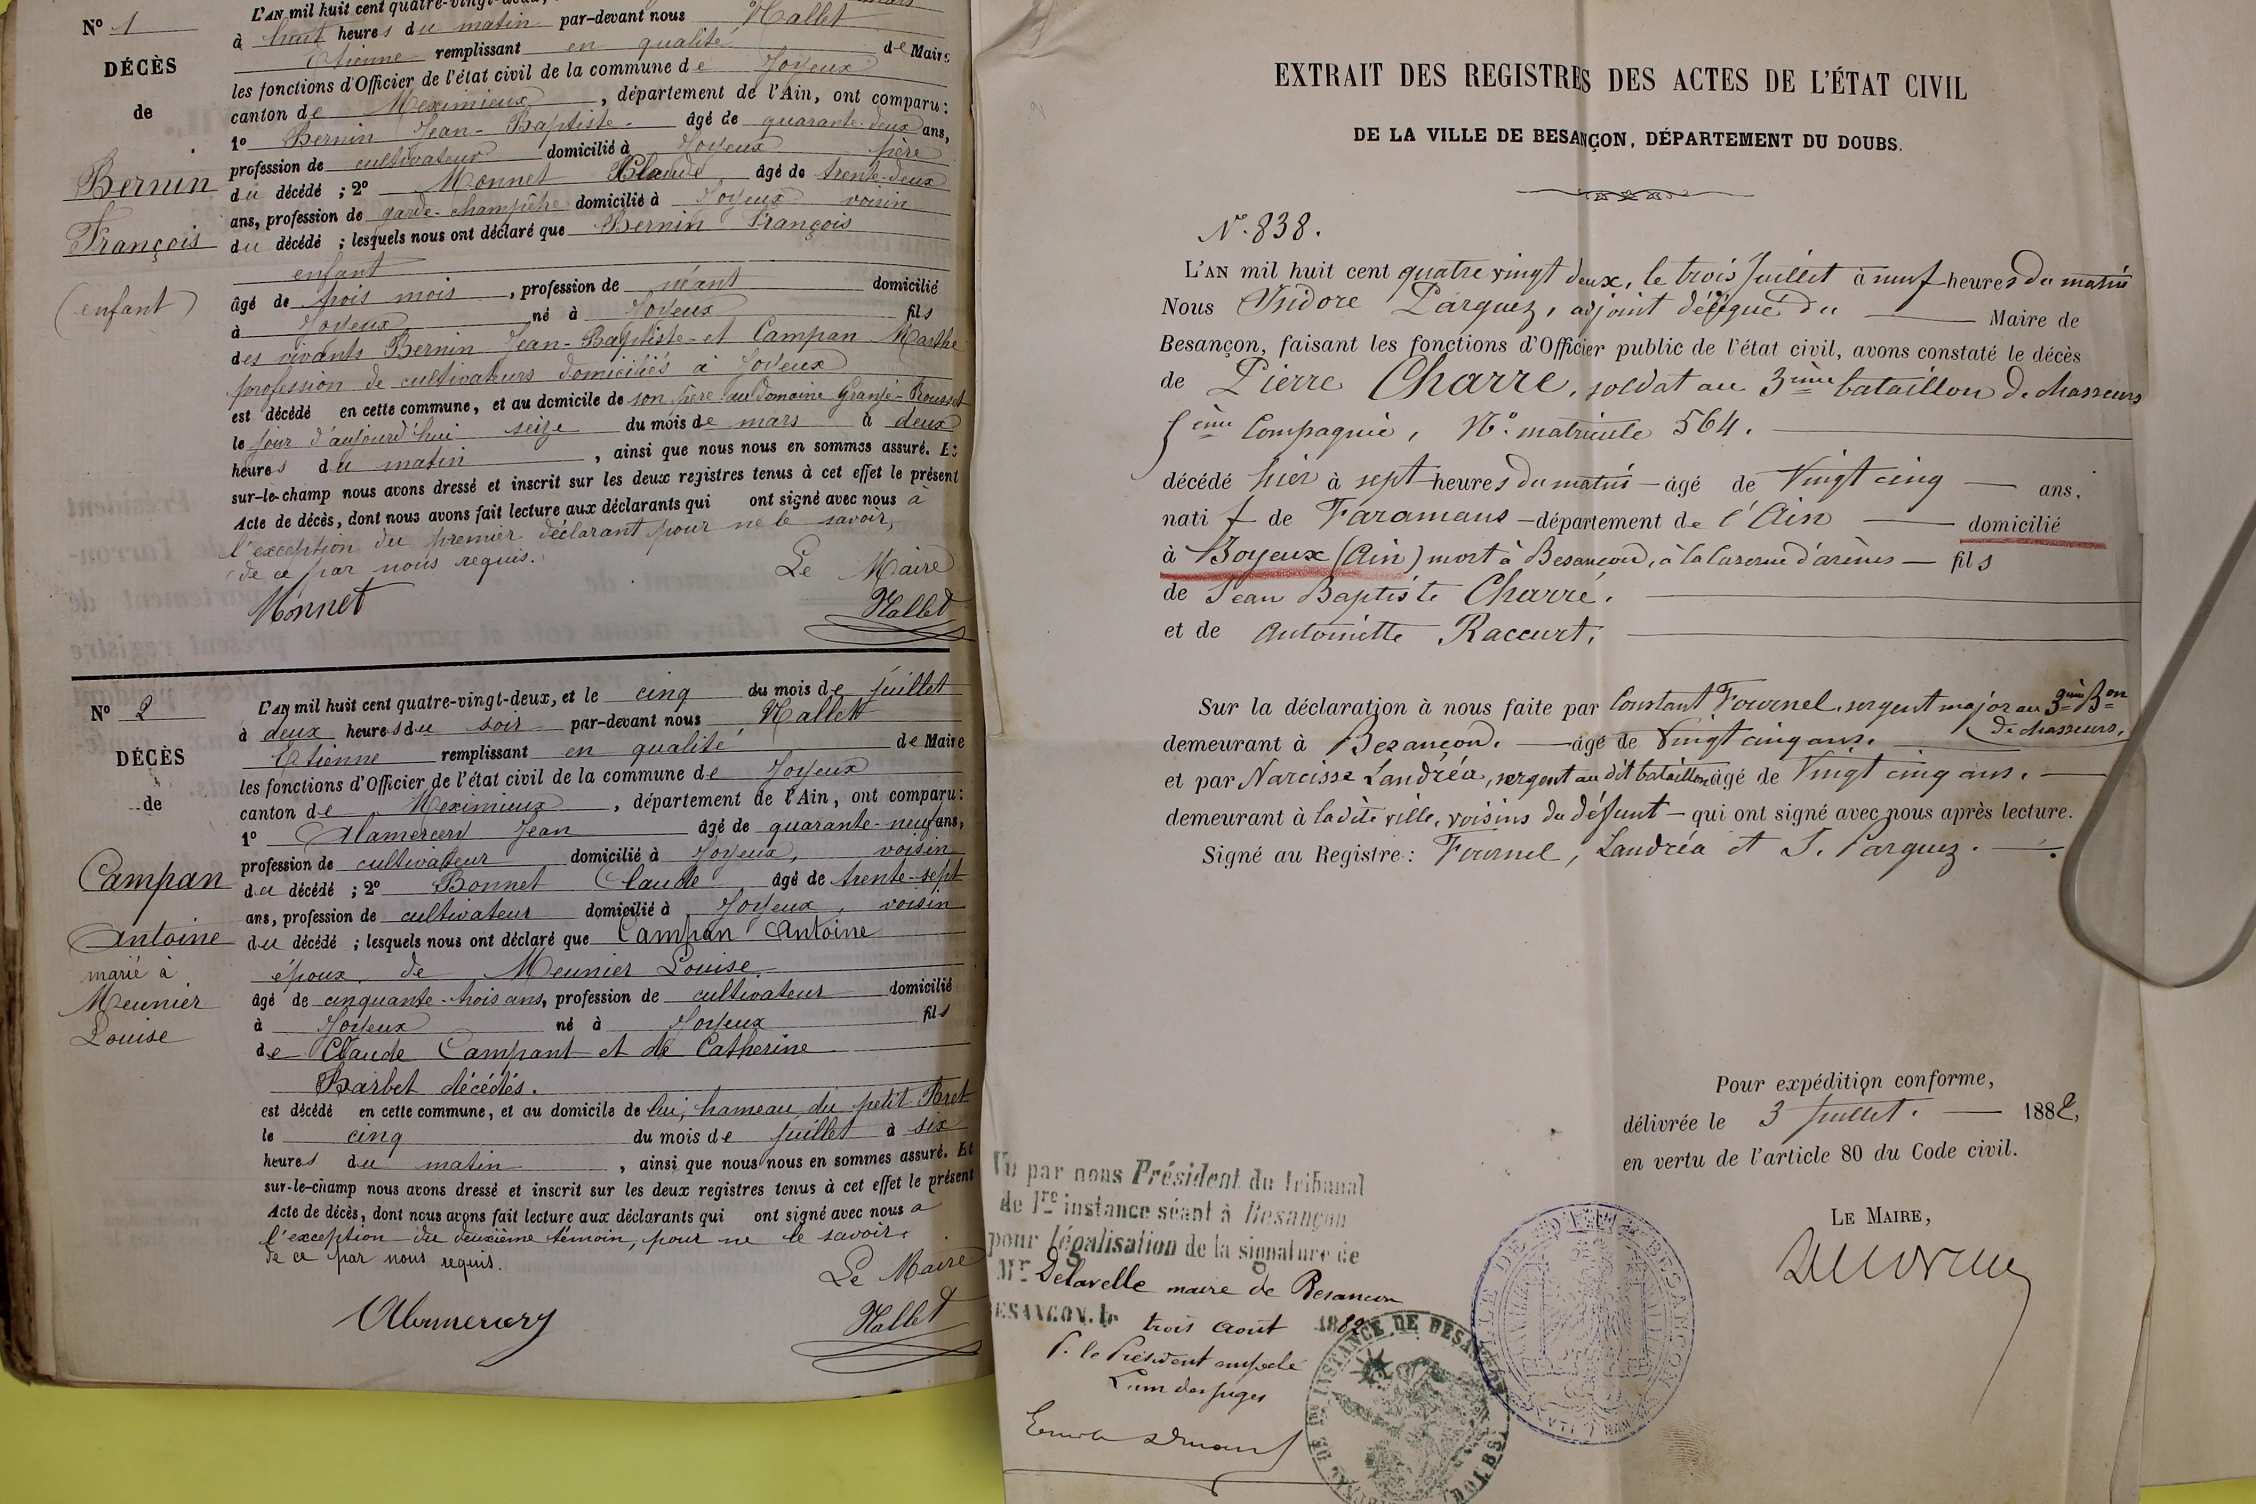 L'AN mil huit cent quatre-vingt-deux,
N° 1
à huit heures du matin par-devant nous Hallet
Etienne remplissant en qualité de Maire
DÉCÈS
les fonctions d'Officier de l'état civil de la commune de Joyeux
de
canton de Meximieux, département de l'Ain, ont comparu :
1° Bernin Jean-Baptiste âgé de quarante-deux ans,
profession de cultivateur domicilié à Joyeux père
Bernin
du décédé ; 2° Monnet Claude âgé de trente-deux
ans, profession de garde-champêtre domicilié à Joyeux voisin
François
du décédé ; lesquels nous ont déclaré que Bernin François
enfant
(enfant)
âgé de trois mois, profession de néant domicilié
à Joyeux né à Joyeux fils
des vivants Bernin Jean-Baptiste et Campan Marthe
profession de cultivateurs domiciliés à Joyeux
est décédé en cette commune, et au domicile de son père au domaine Grange-Rousset
le jour d'aujourd'hui seize du mois de mars à deux
heures du matin, ainsi que nous nous en sommes assuré. Et
sur-le-champ nous avons dressé et inscrit sur les deux registres tenus à cet effet le présent
Acte de décès, dont nous avons fait lecture aux déclarants qui ont signé avec nous à
l'exception du premier déclarant pour ne le savoir,
de ce par nous requis.
Le Maire
Monnet Hallet
L'AN mil huit cent quatre-vingt-deux, et le cinq du mois de juillet
N° 2
à deux heures du soir par-devant nous Hallet
Etienne remplissant en qualité de Maire
DÉCÈS
les fonctions d'Officier de l'état civil de la commune de Joyeux
de
canton de Meximieux, département de l'Ain, ont comparu :
1° Alamercery Jean âgé de quarante-neuf ans,
profession de cultivateur domicilié à Joyeux, voisin
Campan
du décédé ; 2° Bonnet Claude âgé de trente-sept
ans, profession de cultivateur domicilié à Joyeux, voisin
Antoine
du décédé ; lesquels nous ont déclaré que Campan Antoine
marié à
époux de Meunier Louise
Meunier
âgé de cinquante-trois ans, profession de cultivateur domicilié
Louise
à Joyeux né à Joyeux fils
de Claude Campant et de Catherine
Barbet décédés.
est décédé en cette commune, et au domicile de lui, hameau du petit Bret
le cinq du mois de juillet à six
heures du matin, ainsi que nous nous en sommes assuré. Et
sur-le-champ nous avons dressé et inscrit sur les deux registres tenus à cet effet le présent
Acte de décès, dont nous avons fait lecture aux déclarants qui ont signé avec nous a
l'exception du deuxième témoin, pour ne le savoir,
de ce par nous requis.
Le Maire
Alamercery Hallet
EXTRAIT DES REGISTRES DES ACTES DE L'ÉTAT CIVIL
DE LA VILLE DE BESANÇON, DÉPARTEMENT DU DOUBS.
N°. 838.
L'AN mil huit cent quatre vingt deux, le trois Juillet à neuf heures du matin
Nous Isidore Parguez, adjoint délégué du Maire de
Besançon, faisant les fonctions d'Officier public de l'état civil, avons constaté le décès
de Pierre Charre, soldat au 3ème bataillon de chasseurs
5ème Compagnie, N° matricule 564.
décédé hier à sept heures du matin âgé de Vingt cinq ans.
natif de Faramans département de l'Ain domicilié
à Boyeux (Ain) mort à Besançon, à la Caserne d'arènes fils
de Jean Baptiste Charré.
et de Antoinette Raccurt,
Sur la déclaration à nous faite par Constant Fournel, sergent major au 3ème Bon
de chasseurs,
demeurant à Besançon. âgé de Vingt cinq ans.
et par Narcisse Landréa, sergent au dit bataillon âgé de Vingt cinq ans.
demeurant à la dite ville, voisins du défunt qui ont signé avec nous après lecture.
Signé au Registre : Fournel, Landréa et I. Parguez.
Pour expédition conforme,
délivrée le 3 Juillet. 1882,
en vertu de l'article 80 du Code civil.
LE MAIRE,
Vu par nous Président du tribunal
de 1re instance séant à Besançon
pour légalisation de la signature de
Mr Delavelle maire de Besançon
BESANÇON, le trois Août 1882
P. le Président empêché
L'un des juges
VILLE DE BESANÇON
INSTANCE DE BESANÇON DOUBS